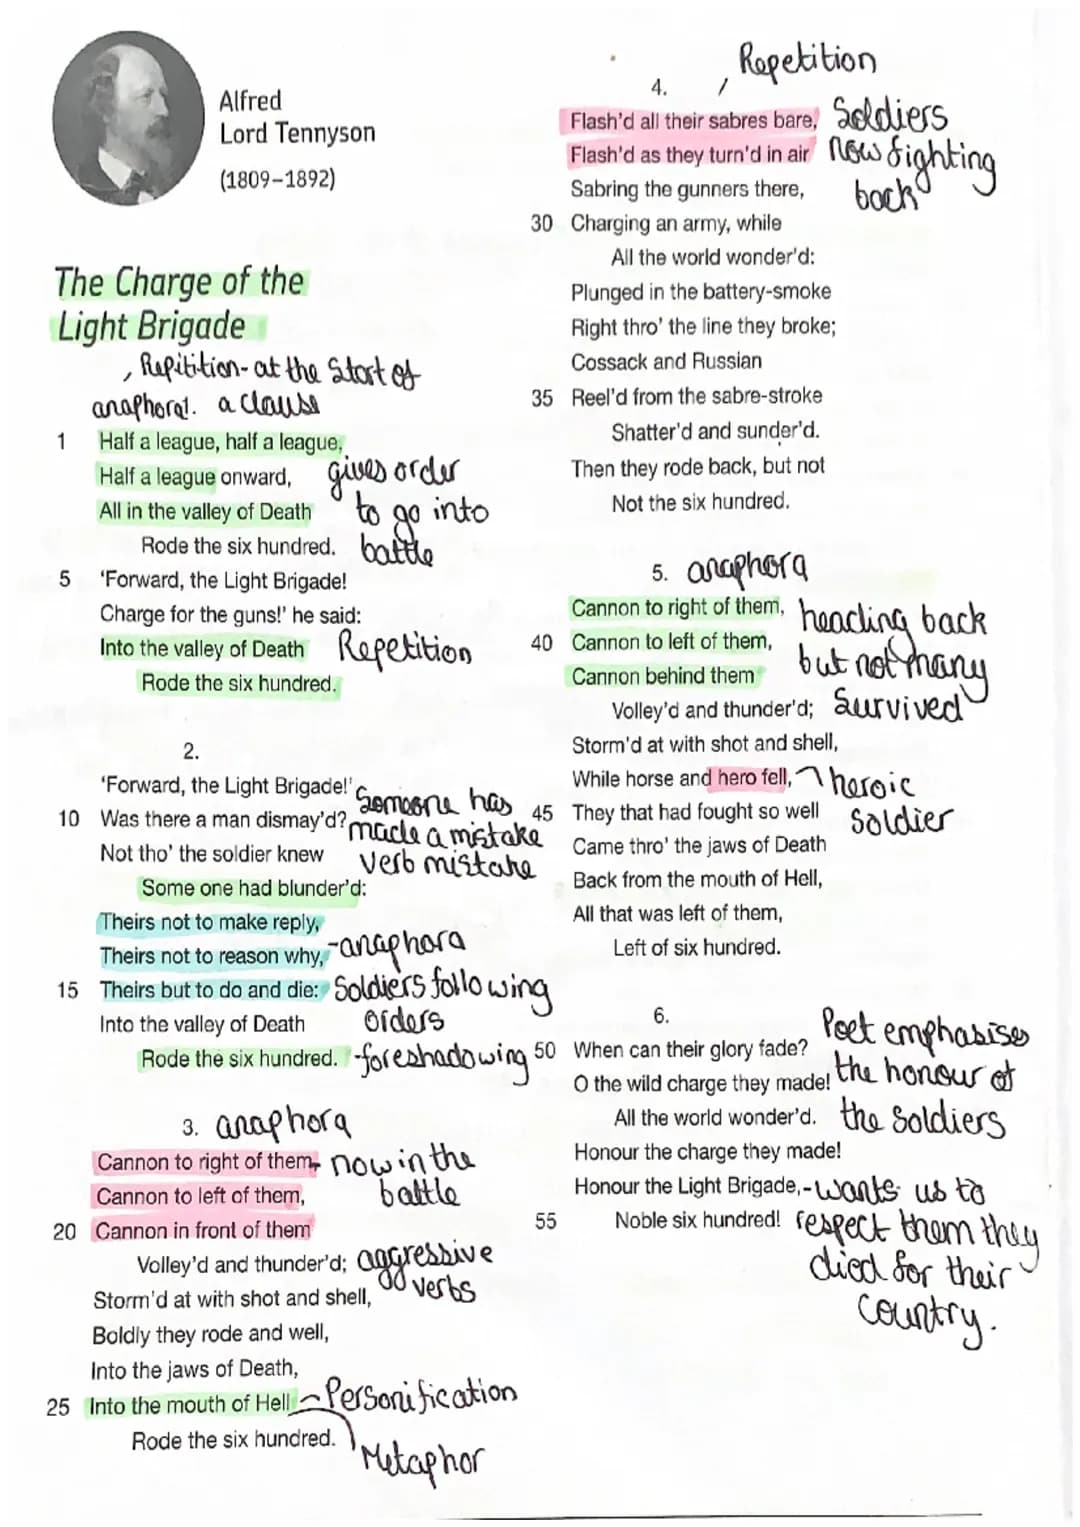 Alfred
Lord Tennyson
(1809–1892)
The Charge of the
Light Brigade
, Repitition- at the start of
anaphora!. a clause
1 Half a league, half a league,
Half a league onward,
All in the valley of Death
Rode the six hundred.
gives order
to go into
battle
5 'Forward, the Light Brigade!
Charge for the guns!' he said:
Into the valley of Death Repetition
Rode the six hundred.
2.
'Forward, the Light Brigade!'
10 Was there a man dismay'd?
Not tho' the soldier knew
Some one had blunder'd:
Someone has
made a mistake
verb mistake
Theirs not to make reply,
Theirs not to reason why,
-anaphora
15 Theirs but to do and die:
Soldiers following
orders
Into the valley of Death
Rode the six hundred. -foreshadowing
3. anaphora
Cannon to right of them,
Cannon to left of them,
now in the
battle
20 Cannon in front of them
Volley'd and thunder'd;
aggressive
verbs
Storm'd at with shot and shell,
Boldly they rode and well,
Into the jaws of Death,
25 Into the mouth of Hell
Rode the six hundred.
Personification
Metaphor
Repetition
4. ,
Flash'd all their sabres bare,
Flash'd as they turn'd in air
Sabring the gunners there,
Soldiers
now fighting
back
30 Charging an army, while
All the world wonder'd:
Plunged in the battery-smoke
Right thro' the line they broke;
Cossack and Russian
35 Reel'd from the sabre-stroke
Shatter'd and sunder'd.
Then they rode back, but not
Not the six hundred.
5. anaphora
Cannon to right of them,
40 Cannon to left of them,
Cannon behind them
Volley'd and thunder'd;
heading back
but not many
Survived
Storm'd at with shot and shell,
While horse and hero fell,
heroic
soldier
45 They that had fought so well
Came thro' the jaws of Death
Back from the mouth of Hell,
All that was left of them,
Left of six hundred.
6.
50 When can their glory fade?
O the wild charge they made!
All the world wonder'd.
Poet emphasises
the honour of
the soldiers
Honour the charge they made!
Honour the Light Brigade,
55 Noble six hundred!
-wants us to
respect them they
died for their
country.